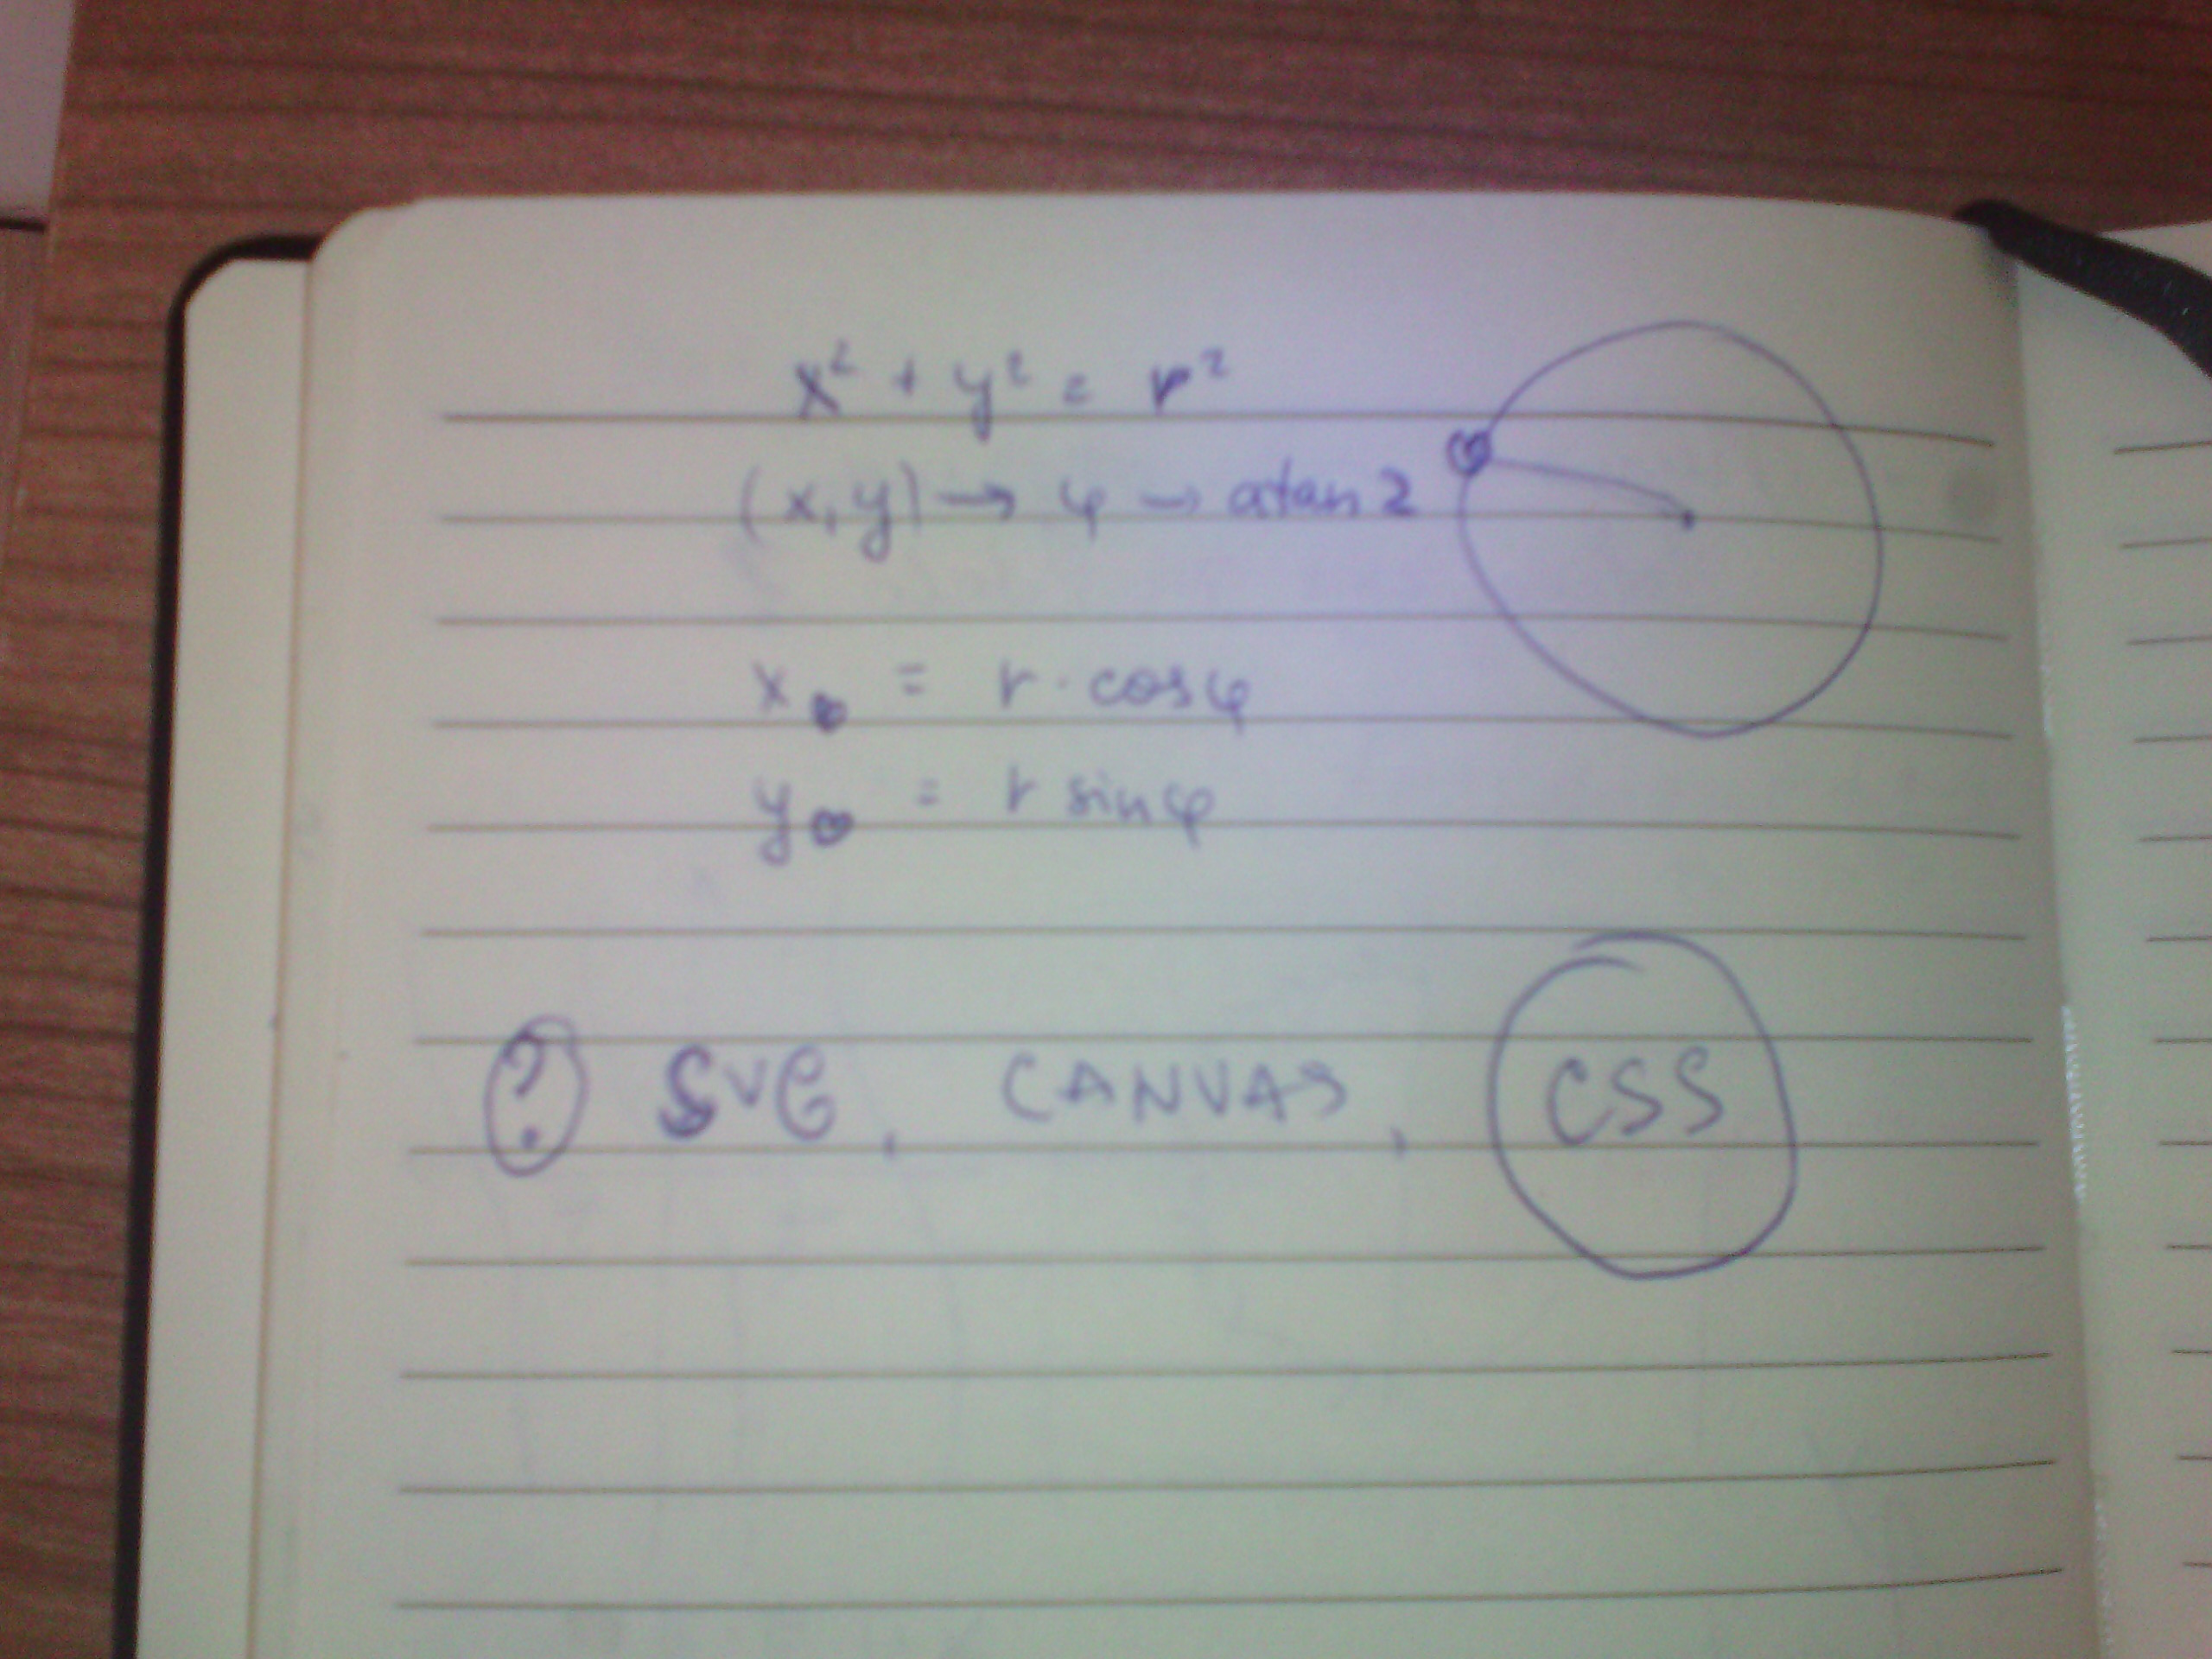 x² + y² = r²
(x, y) → φ → atan2
x = r · cosφ
y = r sinφ
? SVG, CANVAS, CSS